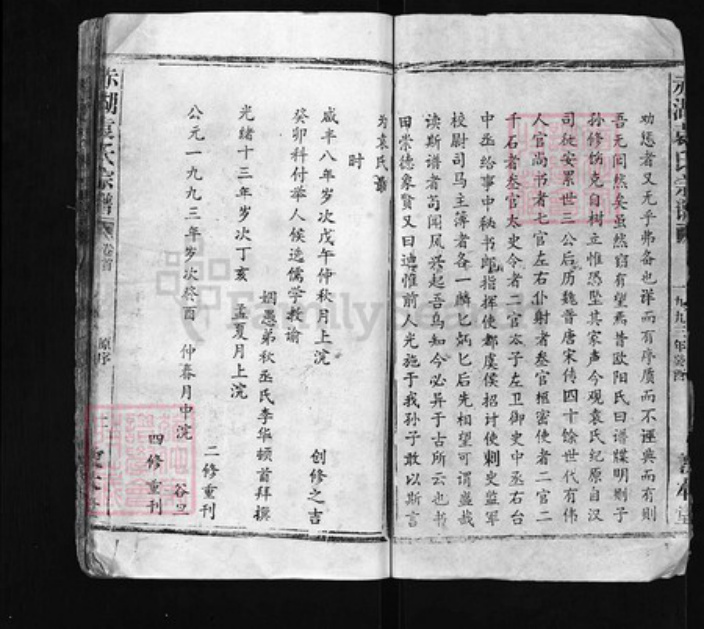 赤湖袁氏宗谱
一九九三年癸酉
善本堂
劝惩者又无乎弗备也详而有序质而不诬典而有则
吾无间然矣虽然窃有望焉昔欧阳氏曰谱牒明则子
孙修饬克自树立惟恐坠其家声今观袁氏纪原自汉
司徒安累世三公后历魏晋唐宋传四十馀世代有伟
人官尚书者七官左右仆射者叁官枢密使者二官二
千石者叁官太史令者二官太子左卫御史中丞右台
中丞给事中秘书郎指挥使都虞侯招讨使刺史监军
校尉司马主簿者各一麟麟炳炳后先相望可谓盛哉
读斯谱者苟闻风兴起吾乌知今必异于古所云也书
曰崇德象贤又曰迪惟前人光施于我孙子敢以斯言
为袁氏
时
咸丰八年岁次戊午仲秋月上浣
创修之吉
癸卯科付举人候选儒学教谕
姻愚弟秋丞氏李华顿首拜撰
光绪十三年岁次丁亥
孟夏月上浣
二修重刊
公元一九九三年岁次癸酉
仲春月中浣
谷旦
四修重刊
赤湖袁氏宗谱
卷首
原序
FamilySearch